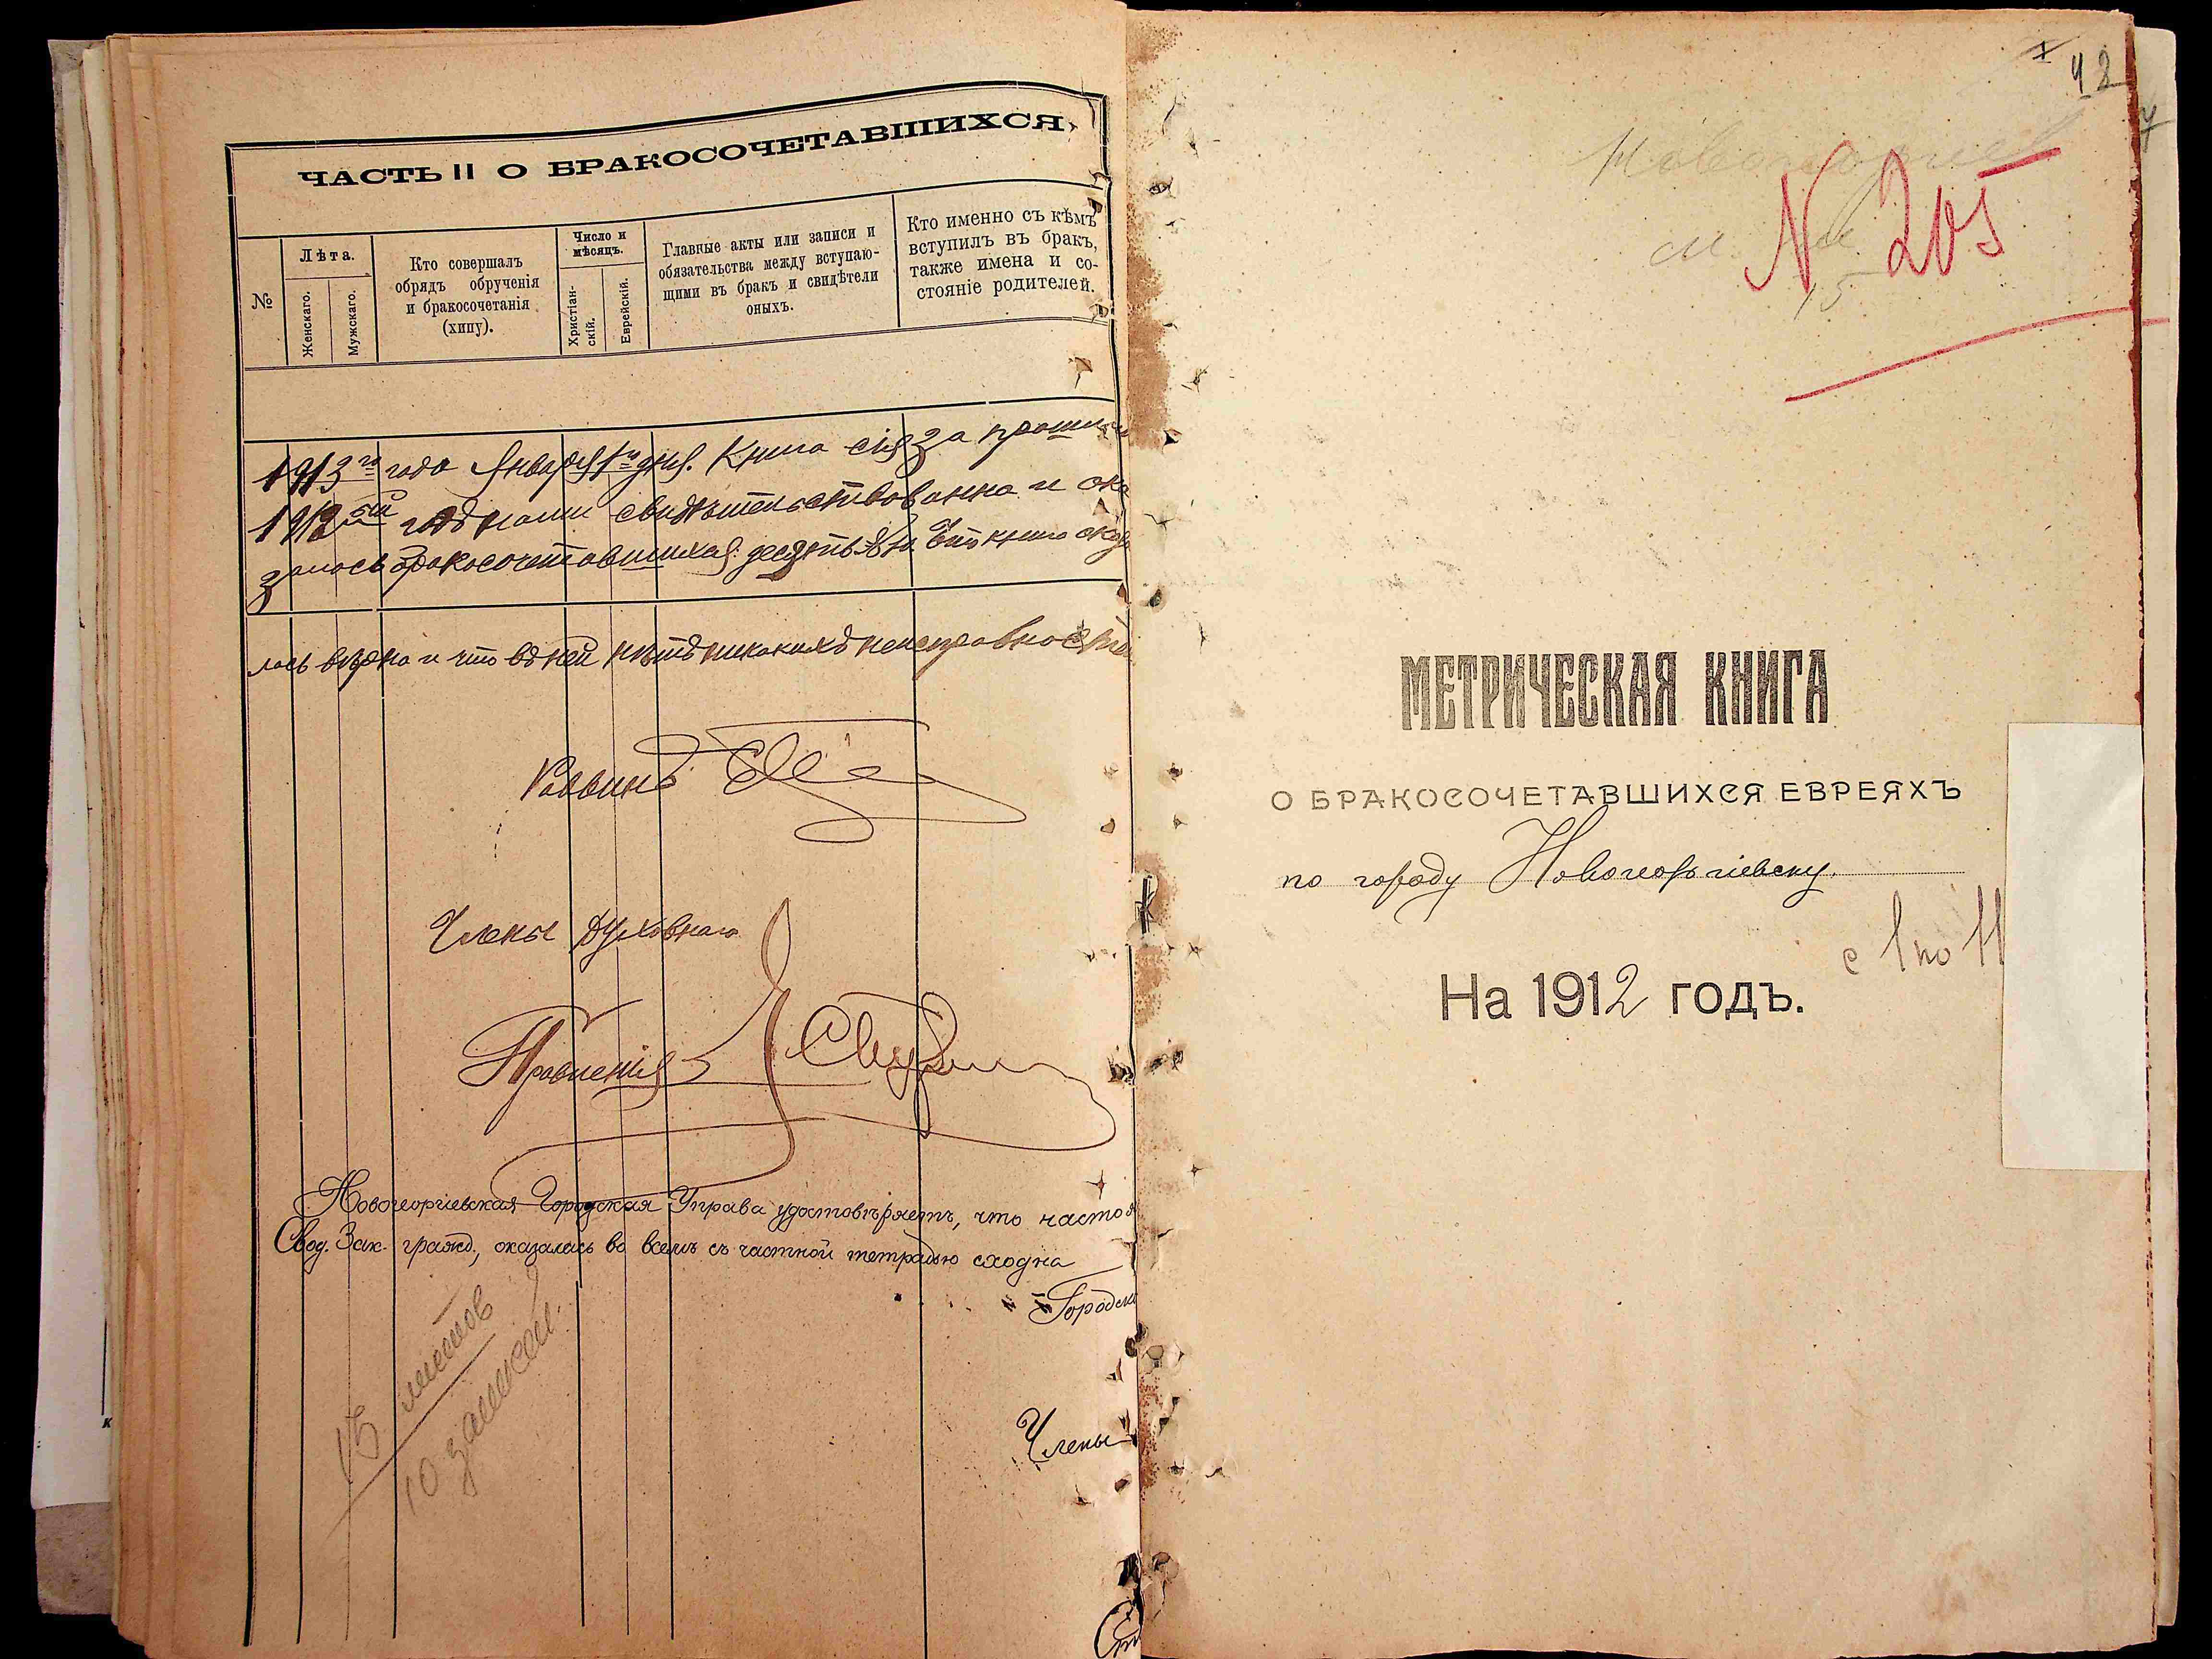 ЧАСТЬ II О БРАКОСОЧЕТАВШИХСЯ
№
Лѣта.
Женскаго.
Мужскаго.
Кто совершалъ
обрядъ обрученія
и бракосочетанія
(хипу).
Число и
мѣсяцъ.
Христіан-
скій.
Еврейскій.
Главные акты или записи и
обязательства между вступаю-
щими въ бракъ и свидѣтели
оныхъ.
Кто именно съ кѣмъ
вступилъ въ бракъ,
также имена и со-
стояніе родителей.
1913 го года Января 1 го дня. Книга сія за прошлый
1912 ый годъ нами свидѣтельствованна и ока
залось бракосочетавшихся десять что книга оказа
лась вѣрна и что въ ней нѣтъ никакихъ неисправносте
Раввинъ
Члены Духовнаго
Правленія
Новогеоргіевская Городская Управа удостовѣряетъ, что настоя
Свод. Зак. гражд., оказалась во всемъ съ частной тетрадью сходна
Городск
Члены
15 листов
10 записей
42
Новогеоргиев
N 205
15
МЕТРИЧЕСКАЯ КНИГА
О БРАКОСОЧЕТАВШИХСЯ ЕВРЕЯХЪ
по городу Новогеоргіевску.
с 1 по 11
На 1912 годъ.